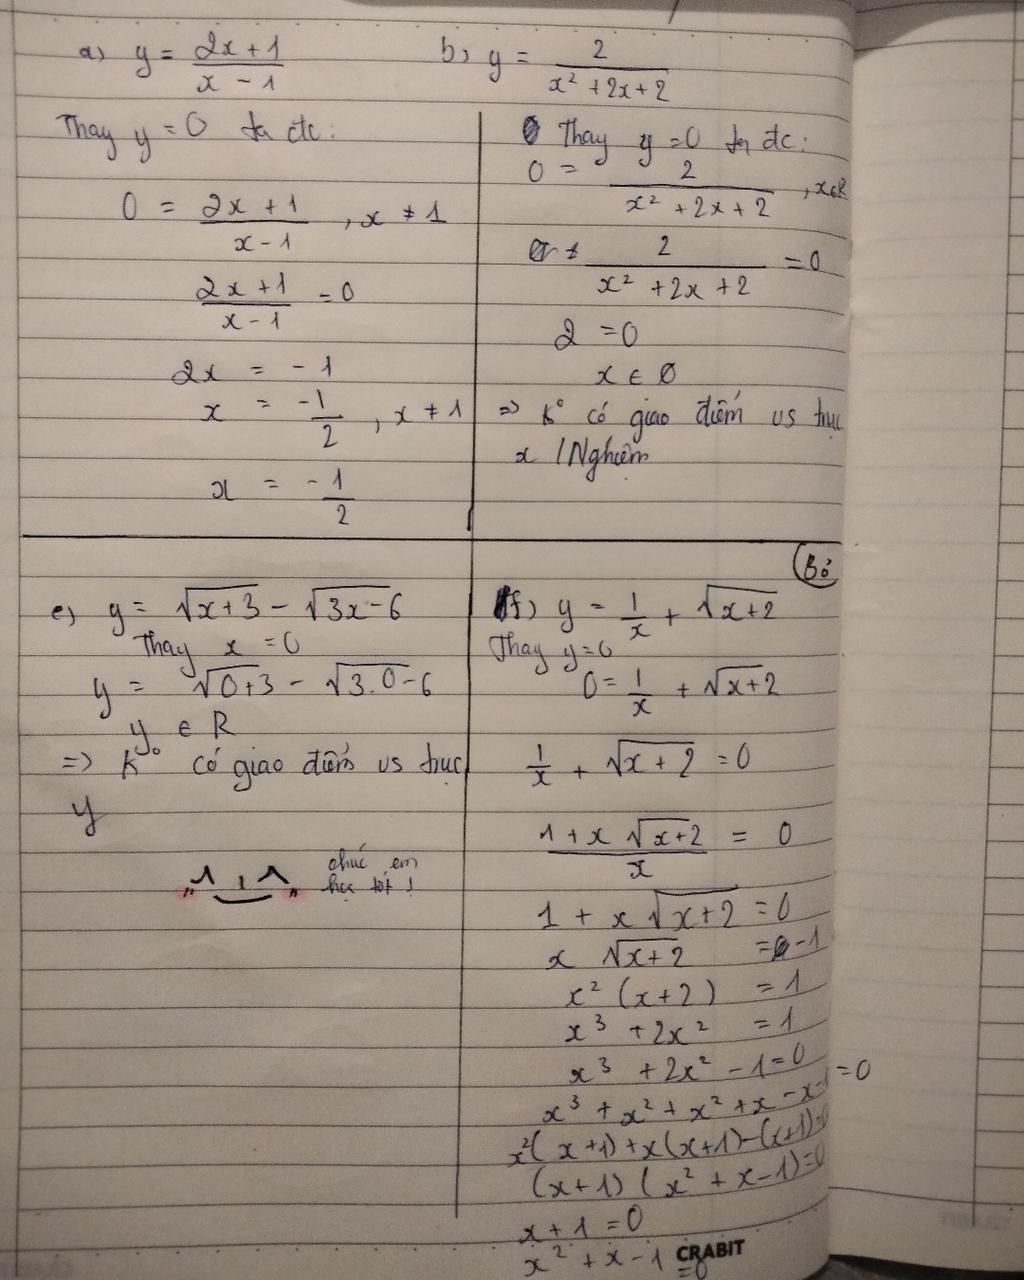 a) y = (2x+1)/(x-1)
b) y = 2/(x² + 2x + 2)
Thay y = 0 ta đc:
0 = (2x+1)/(x-1) , x ≠ 1
(2x+1)/(x-1) = 0
2x = -1
x = -1/2 , x ≠ 1
x = -1/2
Thay y = 0 ta đc:
0 = 2/(x² + 2x + 2) , x∈R
2/(x² + 2x + 2) = 0
2 = 0
x ∈ ∅
=> K° có giao điểm vs trục
x / Nghiệm
e) y = √(x+3) - √(3x-6)
Thay x = 0
y = √(0+3) - √(3.0-6)
y ∈ R
=> K° có giao điểm vs trục
y
chúc em
học tốt !
Bỏ
f) y = 1/x + √(x+2)
Thay y=0
0 = 1/x + √(x+2)
1/x + √(x+2) = 0
(1 + x√(x+2))/x = 0
1 + x√(x+2) = 0
x√(x+2) = -1
x² (x+2) = 1
x³ + 2x² = 1
x³ + 2x² - 1 = 0
x³ + x² + x² + x - x - 1 = 0
x²(x+1) + x(x+1) - (x+1) = 0
(x+1) (x² + x - 1) = 0
x + 1 = 0
x² + x - 1 = 0
CRABIT